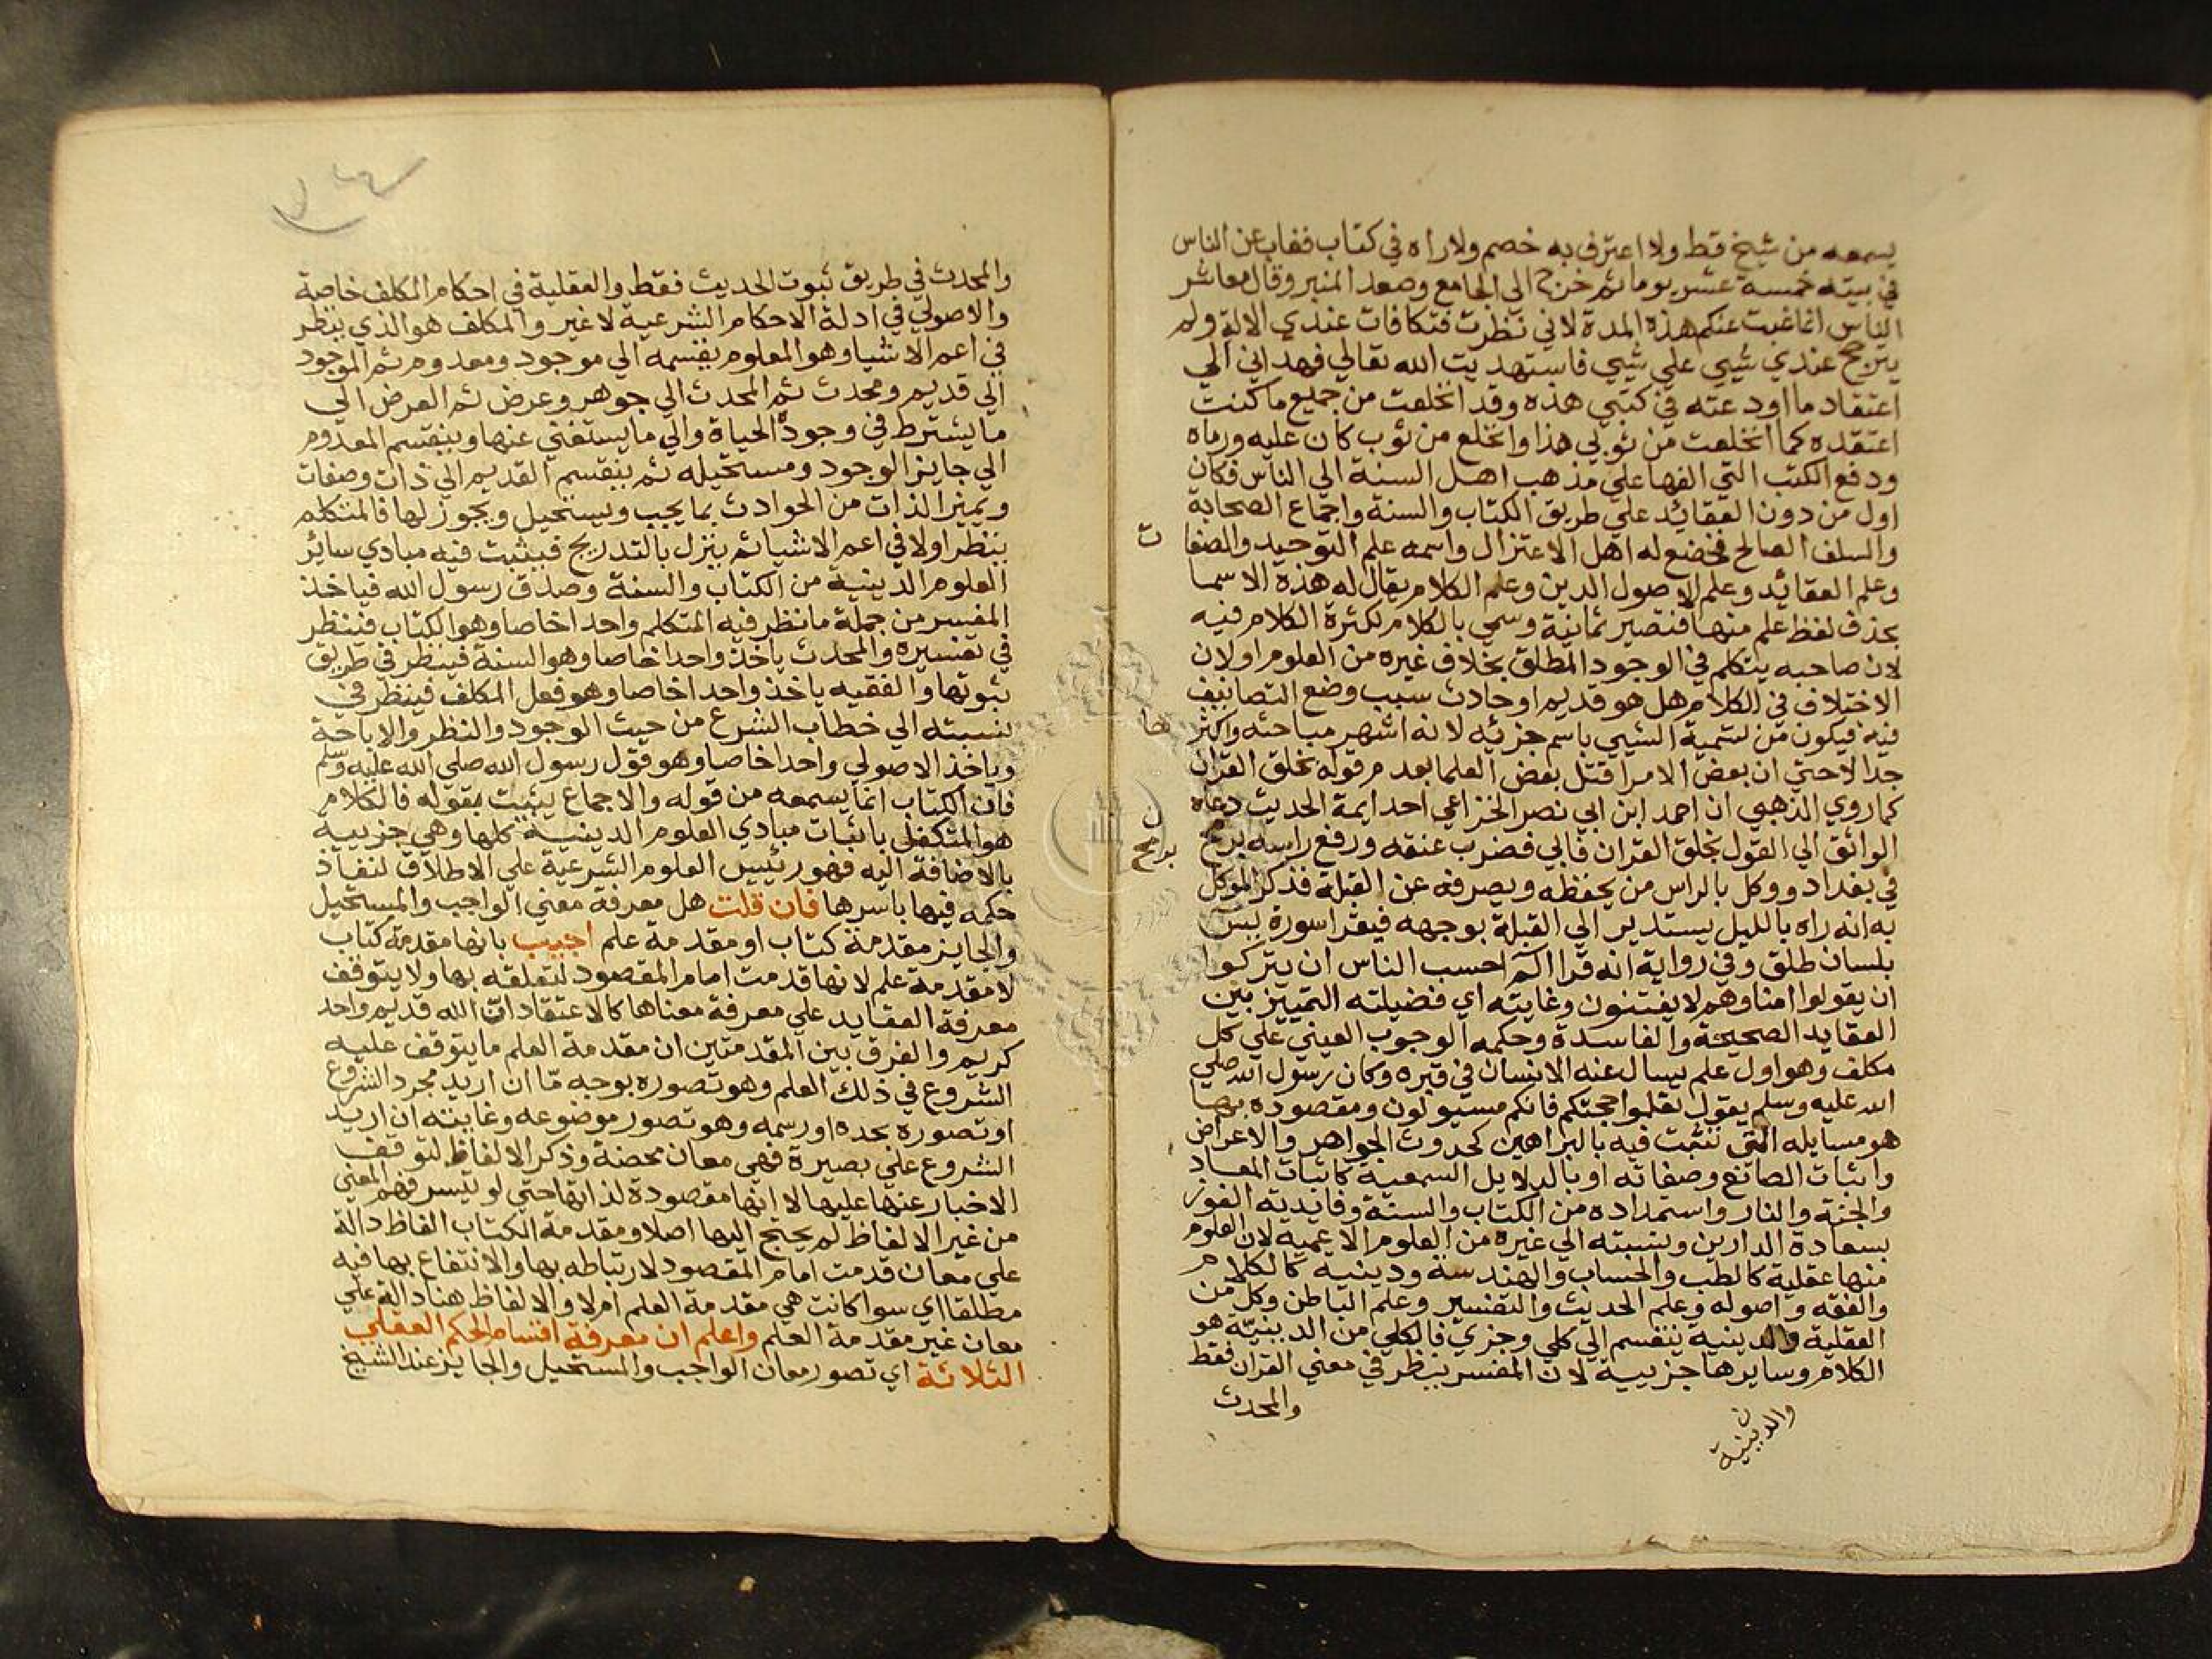 يسمعه من شيخ قط ولا اعترف به خصم ولا راه في كتاب فغاب عن الناس
في بيته خمسة عشر يوما ثم خرج الى الجامع وصعد المنبر وقال معاشر
الناس انما غبت عنكم هذه المدة لاني نظرت فتكافات عندي الادلة ولم
يترجح عندي شيي علي شيي فاستهديت الله تعالي فهداني الي
اعتقاد ما اودعته في كتبي هذه وقد انخلعت من جميع ما كنت
اعتقده كما انخلعت من ثوبي هذا وانخلع من ثوب كان عليه ورماه
ودفع الكتب التي الفها علي مذهب اهل السنة الي الناس فكان
اول من دون العقائد علي طريق الكتاب والسنة واجماع الصحابة
والسلف الصالح فخضع له اهل الاعتزال واسمه علم التوحيد والصفا
ت
وعلم العقائد وعلم الاصول الدين وعلم الكلام يقال له هذة الاسما
بحذف لفظ علم منها فتصير ثمانية وسمي بالكلام لكثرة الكلام فيه
لان صاحبه يتكلم في الوجود المطلق بخلاف غيره من العلوم او لان
الاختلاف في الكلام هل هو قديم او حادث سبب وضع التصانيف
فيه فيكون من تسمية الشيي باسم جزئه لانه اشهر مباحثه واكثر
ها
جدالا حتي ان بعض الامرا قتل بعض العلما بعدم قوله بخلق القران
كما روي الذهبي ان احمد ابن ابي نصر الخزاعي احد ايمة الحديث دعاه
الواثق الي القول بخلق القران فابي فضرب عنقه ورفع راسه برمح
ن
برمح
في بغداد ووكل بالراس من يحفظه ويصرفه عن القبلة فذكر الموكل
به انه راه بالليل يستدير الي القبلة بوجهه فيقرا سورة يس
بلسان طلق وفي رواية انه قرا الم احسب الناس ان يتركوا
ان يقولوا امنا وهم لا يفتنون وغايته اي فضيلته التمييز بين
العقايد الصحيحة والفاسدة وحكمه الوجوب العيني علي كل
مكلف وهو اول علم يسال عنه الانسان في قبره وكان رسول الله صلي
الله عليه وسلم يقول تعلموا حجتكم فانكم مسيولون ومقصوده بها
هو مسايله التي تثبت فيه بالبراهين كحدوث الجواهر والاعراض
واثبات الصانع وصفاته او بالدلايل السمعية كاثبات المعاد
والجنة والنار واستمداده من الكتاب والسنة وفايدته الفوز
بسعادة الدارين ونسبته الي غيره من العلوم الاعمية لان العلوم
منها عقلية كالطب والحساب والهندسة ودينية كالكلام
والفقه واصوله وعلم الحديث والتفسير وعلم الباطن وكل من
العقلية والدينية ينقسم الي كلي وجزي فالكلي من الدينية هو
الكلام وسايرها جزيية لان المفسر ينظر في معني القران فقط
والمحدث
ن
والدينية
والمحدث في طريق ثبوت الحديث فقط والعقلية في احكام المكلف خاصة
والاصولي في ادلة الاحكام الشرعية لا غير والمكلف هو الذي ينظر
في اعم الاشيا وهو المعلوم يقسمه الي موجود ومعدوم ثم الموجود
الي قديم ومحدث ثم المحدث الي جوهر وعرض ثم العرض الي
ما يشترط في وجوده الحياة والي ما يستغني عنها وينقسم المعدوم
الي جايز الوجود ومستحيله ثم ينقسم القديم الي ذات وصفات
ويميز الذات من الحوادث بما يجب ويستحيل ويجوز لها فالمتكلم
ينظر اولا في اعم الاشيا ثم ينزل بالتدريج فيثبت فيه مبادي سائر
العلوم الدينية من الكتاب والسنة وصدق رسول الله فياخذ
المفسر من جملة ما نظر فيه المتكلم واحدا خاصا وهو الكتاب فينظر
في تفسيره والمحدث ياخذ واحدا خاصا وهو السنة فينظر في طريق
ثبوتها والفقيه ياخذ واحدا خاصا وهو فعل المكلف فينظر في
نسبته الي خطاب الشرع من حيث الوجود والنظر والاباحة
وياخذ الاصولي واحدا خاصا وهو قول رسول الله صلي الله عليه وسلم
فان الكتاب انما يسمعه من قوله والاجماع يثبت بقوله فالكلام
هو المتكفل باثبات مبادي العلوم الدينية كلها وهي جزيية
بالاضافة اليه فهو رئيس العلوم الشرعية علي الاطلاق لنفاذ
حكمه فيها باسرها فان قلت هل معرفة معني الواجب والمستحيل
والجايز مقدمة كتاب او مقدمة علم اجيب بانها مقدمة كتاب
لا مقدمة علم لانها قدمت امام المقصود لتعلقه بها ولا يتوقف
معرفة العقايد علي معرفة معناها كالاعتقاد ان الله قديم واحد
كريم والفرق بين المقدمتين ان مقدمة العلم ما يتوقف عليه
الشروع في ذلك العلم وهو تصوره بوجه ما ان اريد مجرد الشروع
او تصوره بحده او رسمه وهو تصور موضوعه وغايته ان اريد
الشروع علي بصيرة فهي معان محضة وذكر الالفاظ لتوقف
الاخبار عنها عليها لا انها مقصودة لذاتها حتي لو تيسر فهم المعني
من غير الالفاظ لم يحتج اليها اصلا ومقدمة الكتاب الفاظ دالة
علي معان قدمت امام المقصود لارتباطه بها والانتفاع بها فيه
مطلقا اي سوا كانت هي مقدمة العلم ام لا والالفاظ هنا دالة علي
معان غير مقدمة العلم واعلم ان معرفة اقسام الحكم العقلي
الثلاثة اي تصور معان الواجب والمستحيل والجايز عند الشيخ